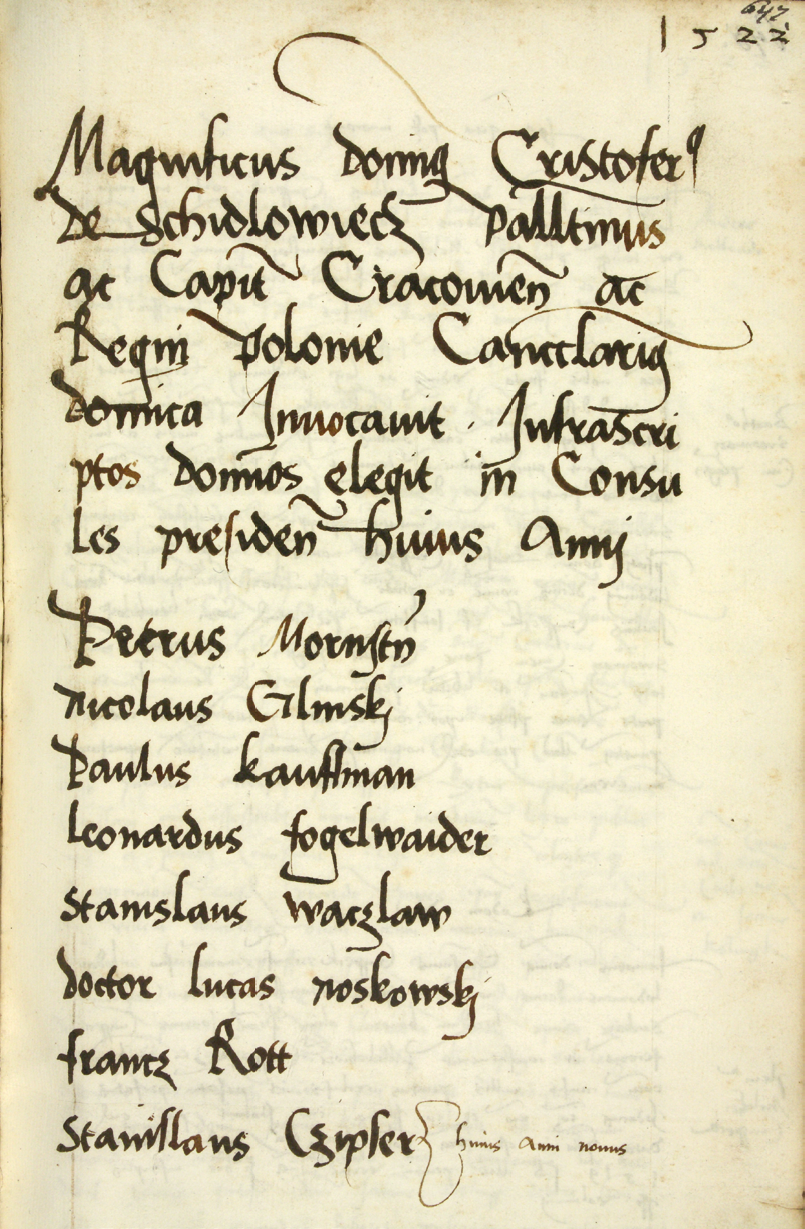 647
1522
Magnificus domin9 Cristofer9
de Schidlowiecz pallatinus
ac Capit Cracovien ac
Regni polonie Cancclari9
domica Invocavit . Infrascri
ptos dominos elegit in Consu
les presiden huius Anni
Petrus Mornstyn
nicolaus Glinskj
Paulus kauffman
leonardus fogelwaider
Stanislaus waczlaw
doctor lucas noskowskj
francz Rott
Stanislaus Czipser huius Anni novus